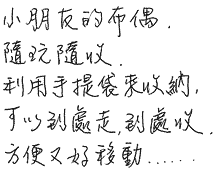 小朋友的布偶.
隨玩隨收.
利用手提袋來收納,
可以到處走,到處收.
方便又好移動......